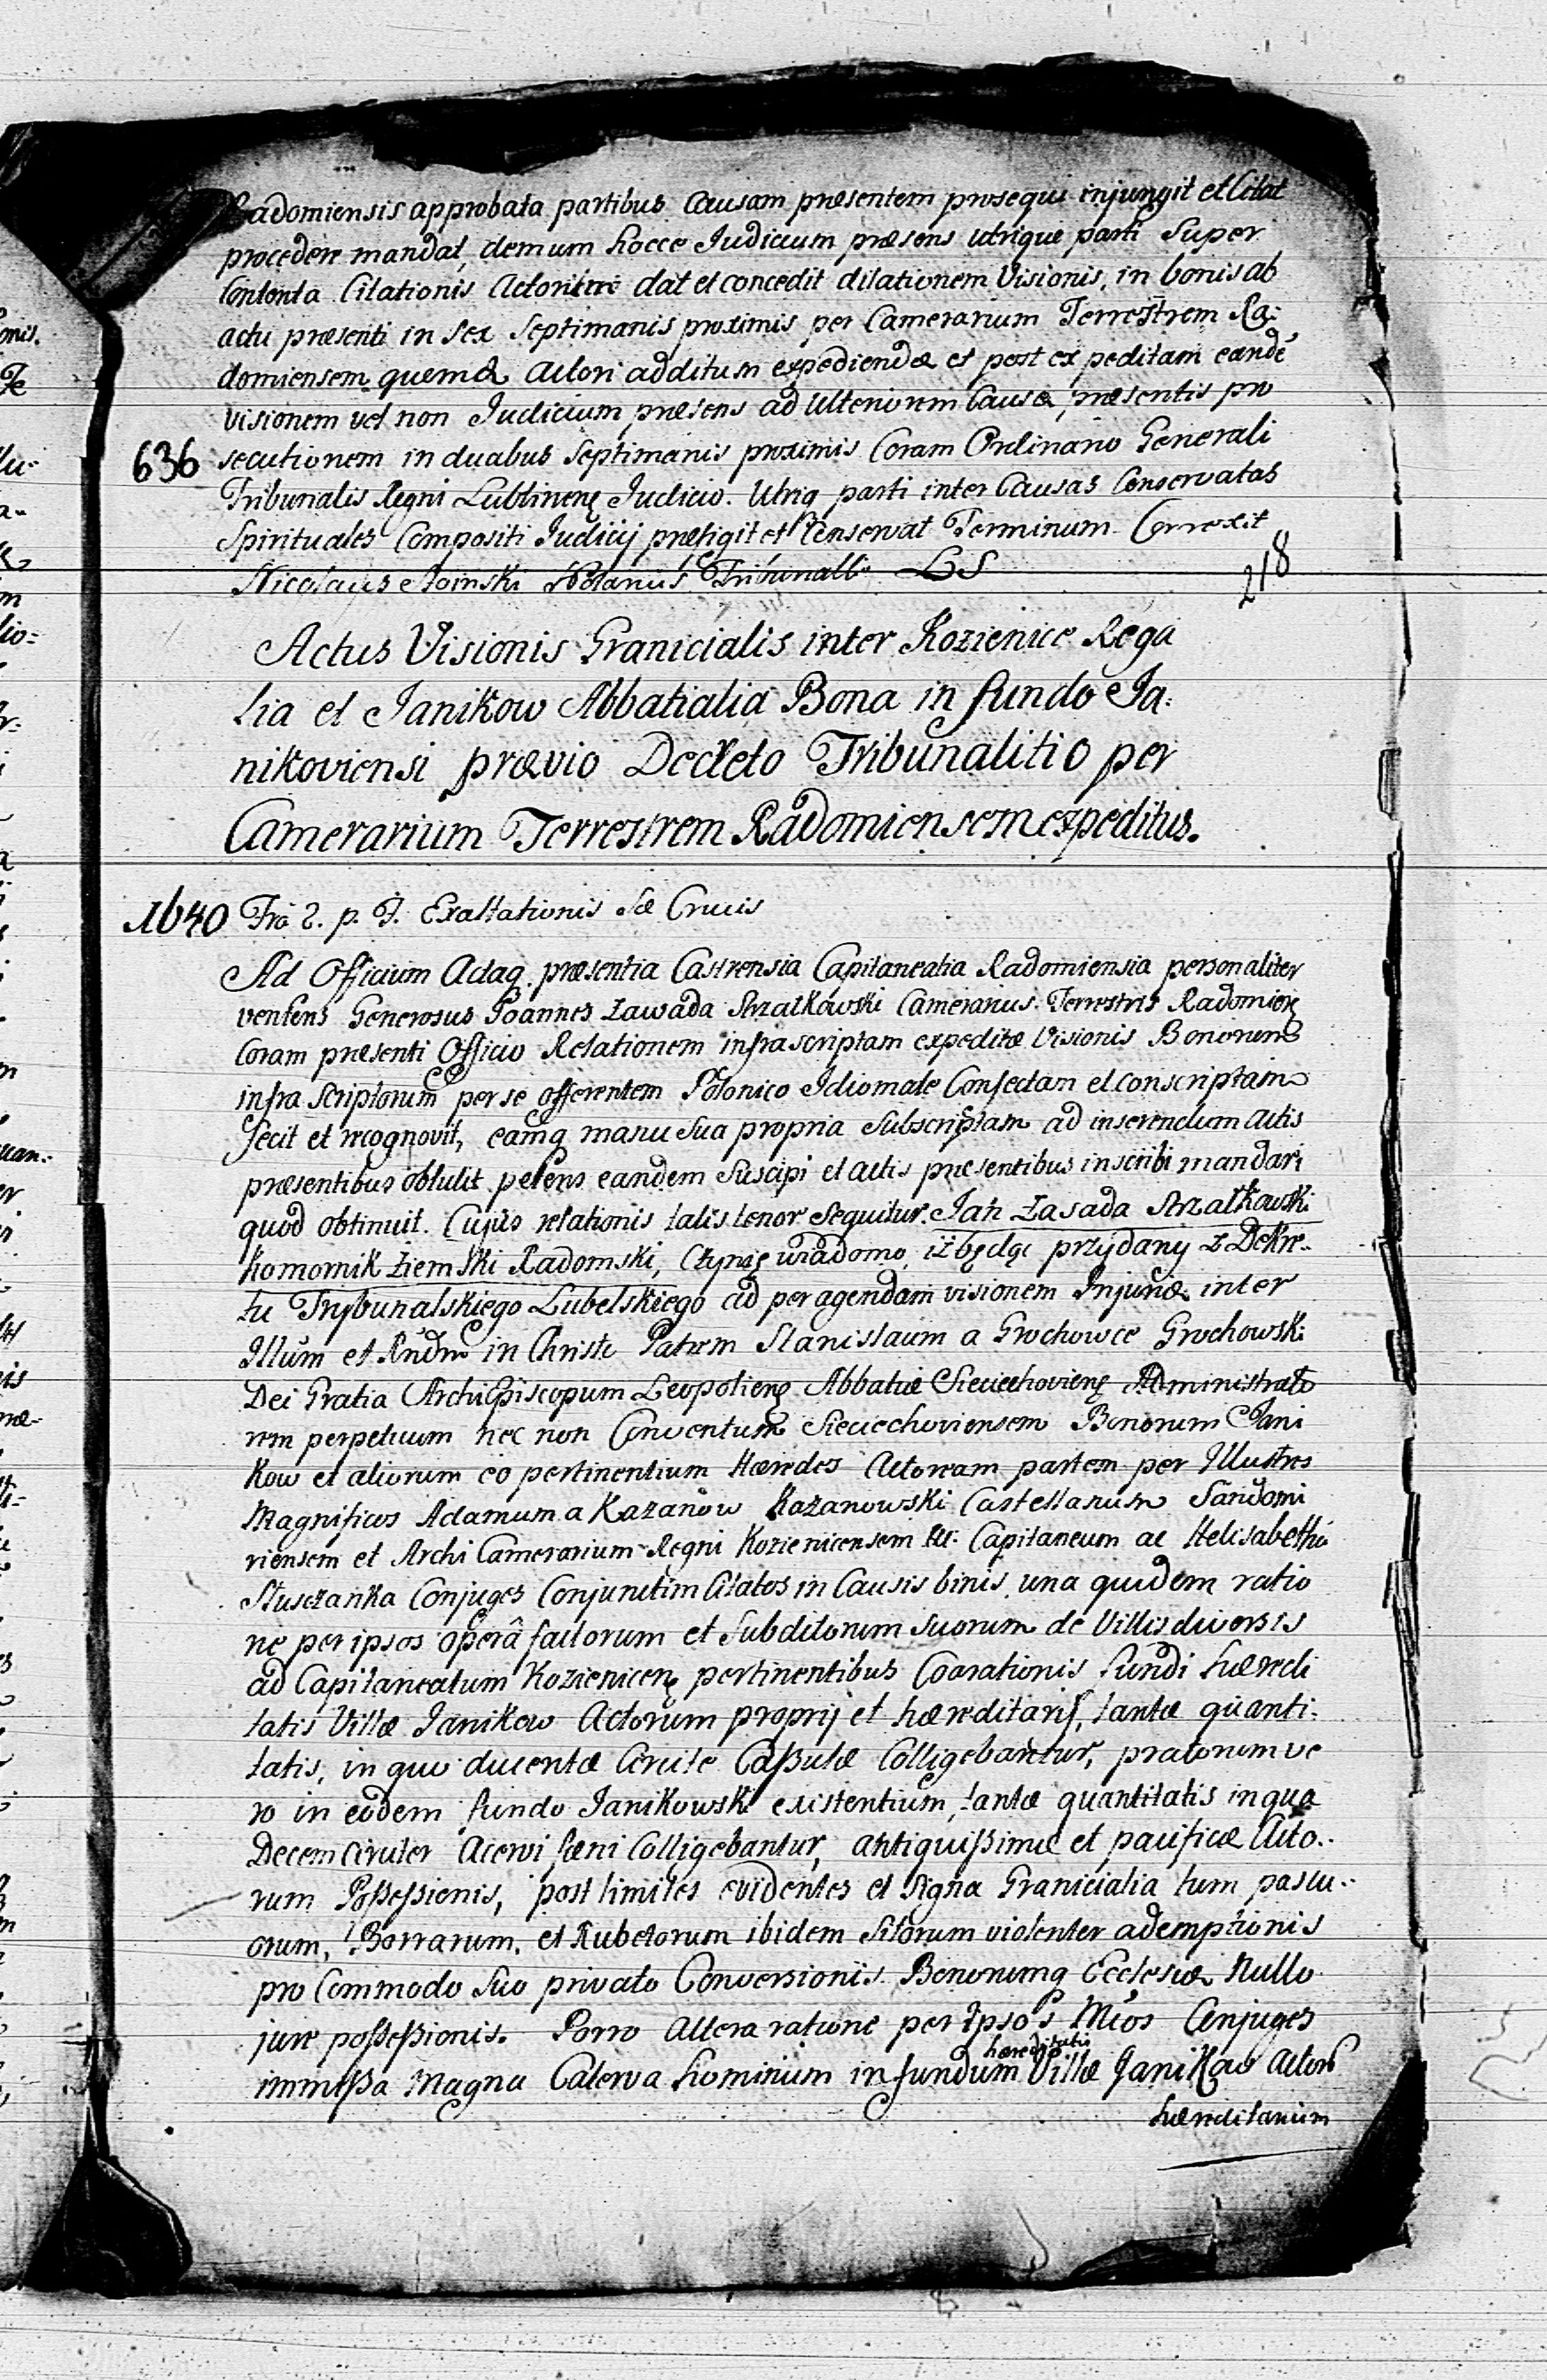 Radomiensis approbata partibus Causam præsentem prosequi injungit et Citat
procedere mandat, demum hocce Judicium præsens utrique parti Super
Contenta Citationis dat et concedit dilationem Visionis, in bonis ab
actu præsenti in Sex Septimanis proximis per Camerarium Terrestrem Ra:
domiensem quemq Actori additum expediendæ et post expeditam eandē
visionem vel non Judicium præsens ad Ulteriorem Causæ, præsentis pro
636 secutionem in duabus Septimanis proximis Coram Ordinario Generali
Tribunalis Regni Lublinenę Judicio. Utriq parti inter Causas Conservatas
Spirituales Compositi Judicij præfigit et Conservat Terminum. Correxit
Nicolaus Notarius LS
218
Actus Visionis Granicialis inter Kozienice Rega
lia et Janikow Abbatialia Bona in fundo Ja:
nikoviensi prævio Decreto Tribunalitio per
Camerarium Terrestrem Radomiensem expeditus.
1640 Fra 2. p. F. Exaltationis Sæ Crucis
Ad Officium Actaq. præsentia Castrensia Capitanealia Radomiensia personaliter
veniens Generosus Joannes Zawada Strzałkowski Camerarius Terrestris Radomienę
Coram præsenti Officio Relationem infrascriptam expeditæ Visionis Bonorum
infra Scriptorum per se offerentem Polonico Idiomate Confectam et conscriptam
fecit et recognovit, eamq manu Sua propria Subscriptam ad inserendum Actis
præsentibus obtulit petens eandem Suscipi et actis præsentibus inscribi mandari
quod obtinuit. Cujus relationis talis tenor Sequitur. Jan Zasada Strzałkowski
Komornik Ziemski Radomski, Czynię wiadomo, iż będąc przydany z Dekre..
tu Trybunalskiego Lubelskiego ad peragendam visionem Injuriæ inter
Illūm et Rndm in Christo Patrem Stanislaum a Grochowce Grochowski
Dei Gratia ArchiEpiscopum Leopolienę Abbatiæ Sieciechovienę Administrato
rem perpetuum nec non Conventum Sieciechoviensem Bonorum Jani
kow et aliorum eo pertinentium Hæredes Actoream partem per Illustres
Magnificos Adamum a Kazanow Kazanowski Castellanum Sandomi
riensem et Archi Camerarium Regni Kozienicensem Capitaneum ac Helisabetha
Słuszanka Conjuges Conjunctim Citatos in Causis binis una quidem ratio
ne per ipsos operâ factorum et Subditorum Suorum de Villis diversis
ad Capitaneatum Kozienicenę pertinentibus Coarationis fundi hæredi
tatis Villæ Janikow Actorum proprij et hæreditarij, tantæ quanti:
tatis, in quo ducentæ Circite Caßulæ Colligebantur, pratorum ve
ro in eodem fundo Janikowski existentium, tantæ quantitatis in qua
Decem Circiter Acervi fæni Colligebantur, antiquißimæ et pacificæ Acto..
rum Poßeßionis, post limites evidentes et signa Granicialia tum pascu..
orum, Borrarum, et Rubetorum ibidem Sitorum violenter ademptionis
pro Commodo Suo privato Conversionis. Bonorumq Ecclesiæ Nullo
jure poßeßionis. Porro Altera ratione per Ipsos Mcos Conjuges
immißa Magna Caterva hominum in fundum hæreditatis Villæ Janikow Actor
hæreditarium